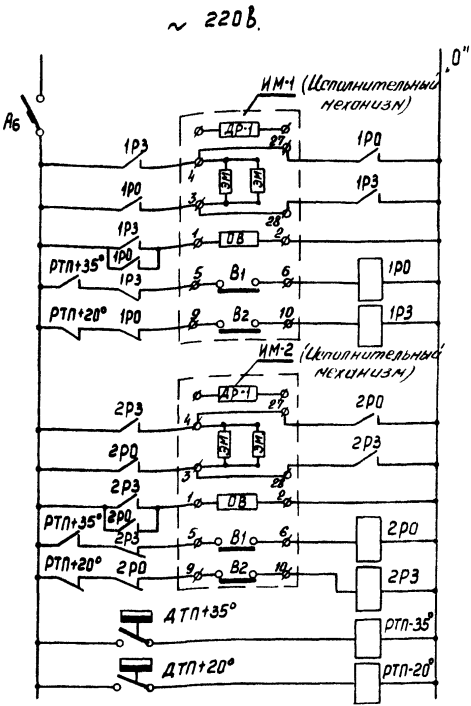 ~ 220В.
"О"
ИМ-1 (Исполнительный
механизм)
Аб
ДР-1
27
1РЗ
4
1РО
ЭМ
ЭМ
1РО
3
28
1РЗ
1РЗ
1
ОВ
2
1РО
РТП+35°
1РЗ
5
В1
6
1РО
РТП+20°
1РО
9
В2
10
1РЗ
ИМ-2 (Исполнительный
механизм)
ДР-1
27
2РЗ
4
2РО
ЭМ
ЭМ
2РО
3
28
2РЗ
2РЗ
1
ОВ
2
2РО
РТП+35°
2РЗ
5
В1
6
2РО
РТП+20°
2РО
9
В2
10
2РЗ
ДТП+35°
РТП-35°
ДТП+20°
РТП-20°